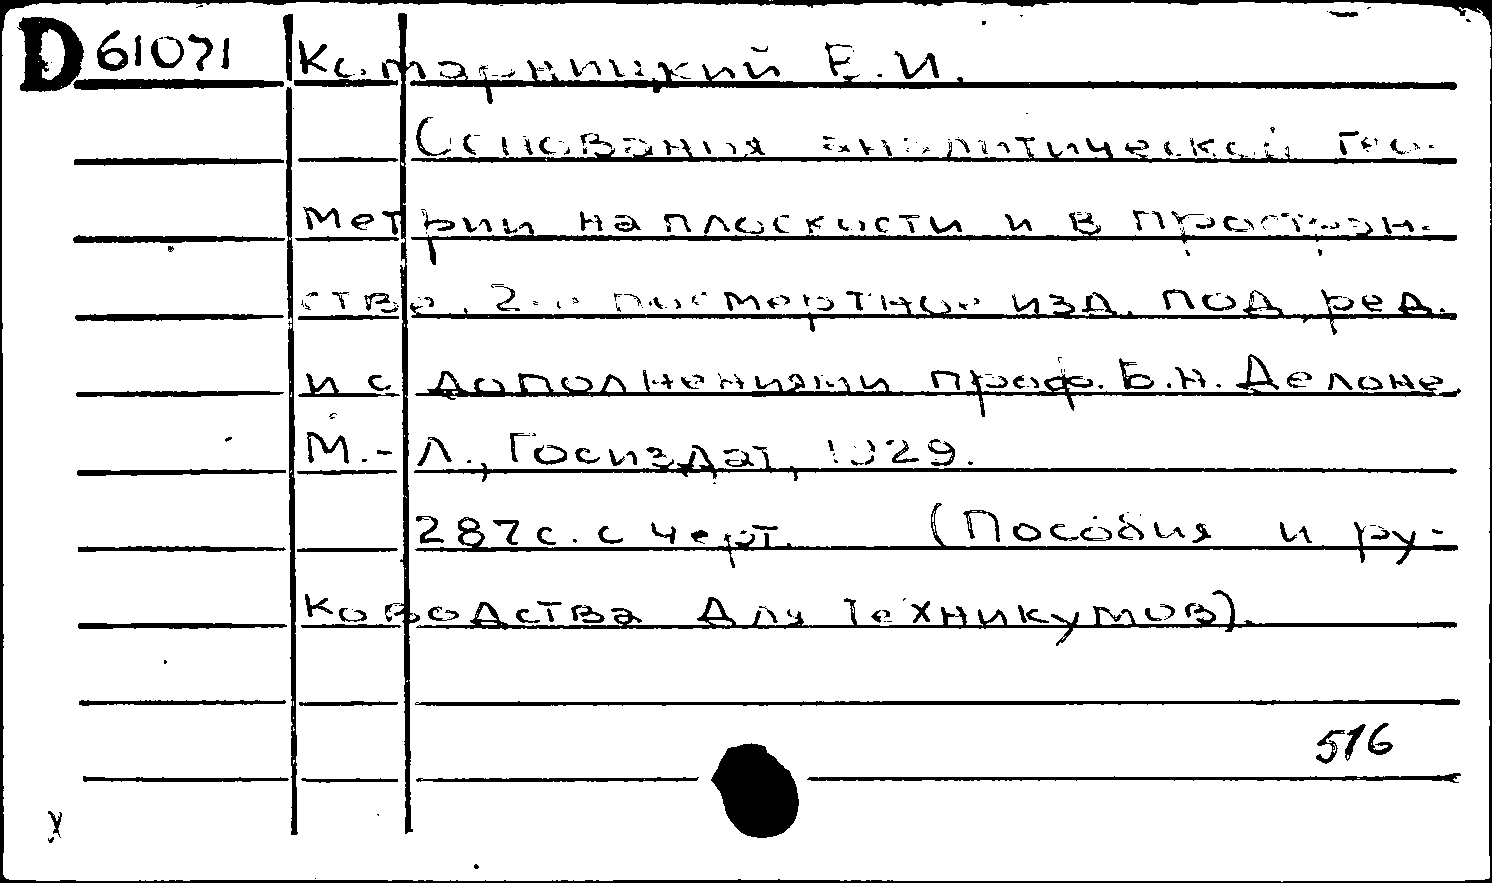 D 61071 Комарницкий Е.И.
Основания аналитической гео-
метрии на плоскости и в простран-
стве. 2-ое посмертное изд. под ред.
и с дополнениями проф. Б.Н. Делоне
М.-Л., Госиздат, 1929.
287 с. с черт. (Пособия и ру-
ководства для техникумов).
516